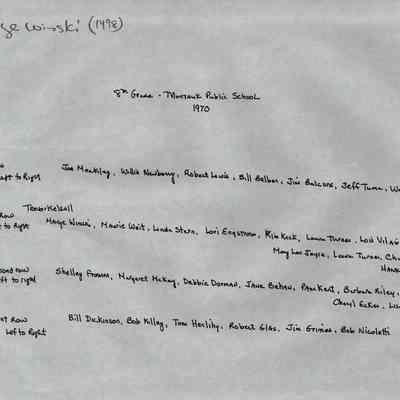 ge Winski (1998)
8th Grade - Montauk Public School
1970
Joe Markley, Willie Newberry, Robert Lewis, Bill Belber, Jim Balcuns, Jeff Tuma, W
Left to Right
Row
to Right
Marge Winski, Marie Wait, Linda Stern, Lori Engstrom, Kim Keck, Laura Turner, Lori
Mary Lou Joyce, Laura Turner, Ch
second row
left to right
Shelley Fromm, Margaret McKay, Debbie Dorman, Jane Behan, Pam Kent, Barbara Riley,
Cheryl Ecker,
Row
Left to Right
Bill Dickinson, Bob Killey, Tom Herlihy, Robert Glas, Jim Grimes, Bob Nicoletti